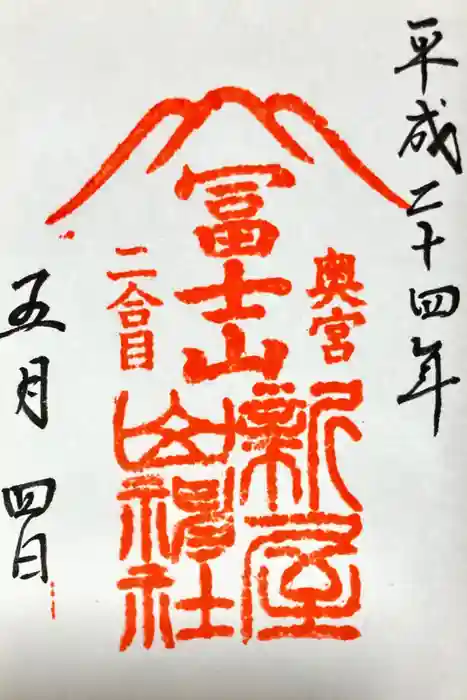 平成二十四年
奥宮
冨士山
二合目
新屋
山神社
五月四日